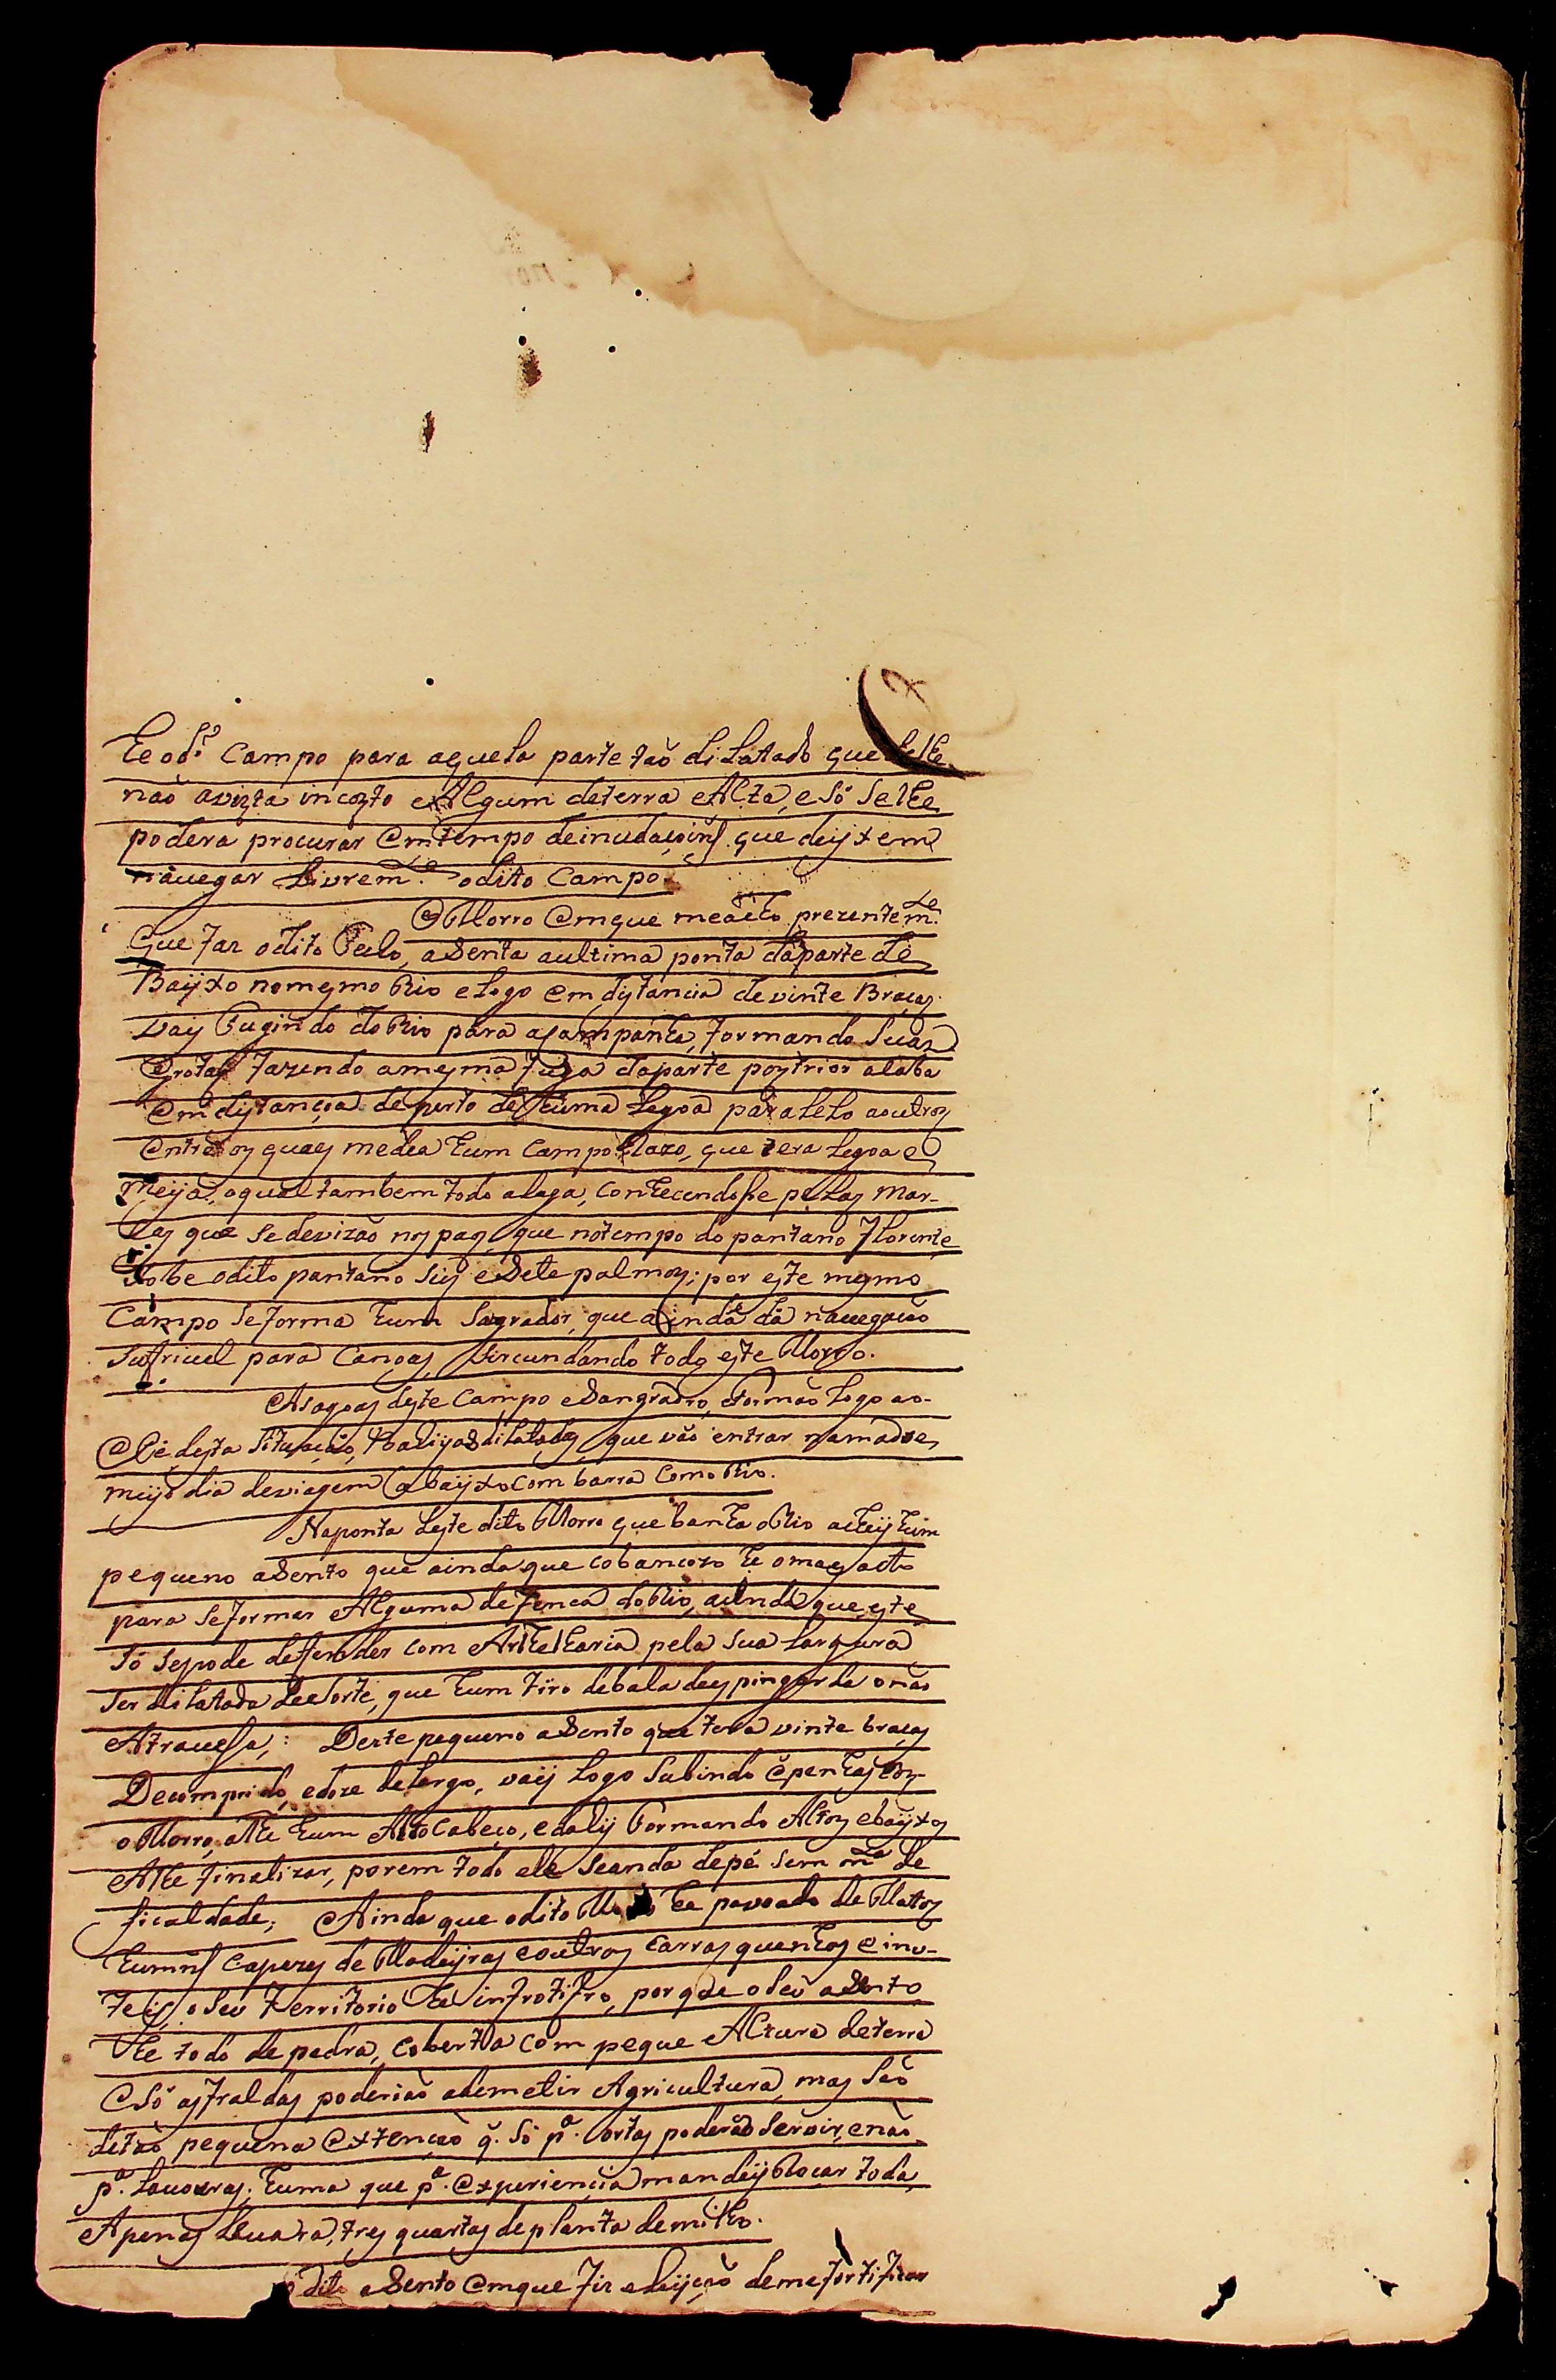 he od.º Campo para aquela parte tão dilatado que
não avizta incozto Algum deterra Alta, e só Selhe
poderá procurar Emtempo deinudaçoins que deijxem
nauegar Livrem.te odito Campo.
O Morro Emque meacho prezentem.te
que faz odito Fecho, aSenta aultima ponta daparte de
Baijxo nomesmo Rio eLogo Em distancia devinte Braças
vaij Fugindo do Rio para acampanha, formando Suas
Grotas fazendo amesma fuga daparte postrior
Em distançia de perto dehuma Legoa paraLeLo aoutros
Entre os quaes medea hum Campo Razo, que tera Legoa e
Meija, oqual tambem todo alaga, conhecendoSe peLas mar-
cas que Sedevizão nos paos, que notempo do pantano
Sobe odito pantano Seis eSete palmos; por este mesmo
Campo Seforma hum Sagrador, que ainda dá nauegação
Sufriuel para Canoas, Sircundando todo este Morro.
As agoas deste Campo eSangradro, Formão Logo ao-
Pé desta Situação, Bahijas dilatadas, que vão entrar namadre,
meijo dia deviagem abaijxo com barra Como Rio.
Naponta deste dito Morro que banha oRio acheij hum
pequeno aSento que ainda que cobancozo he omais acto
para Seformar Alguma defença doRio, ainda que este
Só Sepode defender com Artelharia pela Sua Largura
Ser dilatada deSorte, que hum tiro debala despingarda onão
Atraueça; Deste pequeno aSento que tera vinte braças
Decomprido, edoze deLargo, vaij Logo Subindo Epenhascoz-
o Morro, athe hum Alto Cabeço, edalij Formando Altos ebaijxos
Athe finalizar, porem todo ele Seanda depé Sem m.ta de
ficaldade; Ainda que odito Morro he povoado de Mattos
huuns Capozes de Madeijras eoutros Carrasquenhos einu-
teis, oSeu Territorio he infrotifro, porque oSeu aSento
he todo de pedra, coberta com peque Altura deterra
ESó asfraldas poderião ademetir Agricultura, mas São
detão pequena Extenção q. Só p.ª ortas poderão Servir, enão
p.ª Lauouras; huma que p.ª Experiençia mandeij Roçar toda
Apenas Leuara, tres quartas deplanta demilho.
o dito aSento Emque fiz eleijção demefortificar